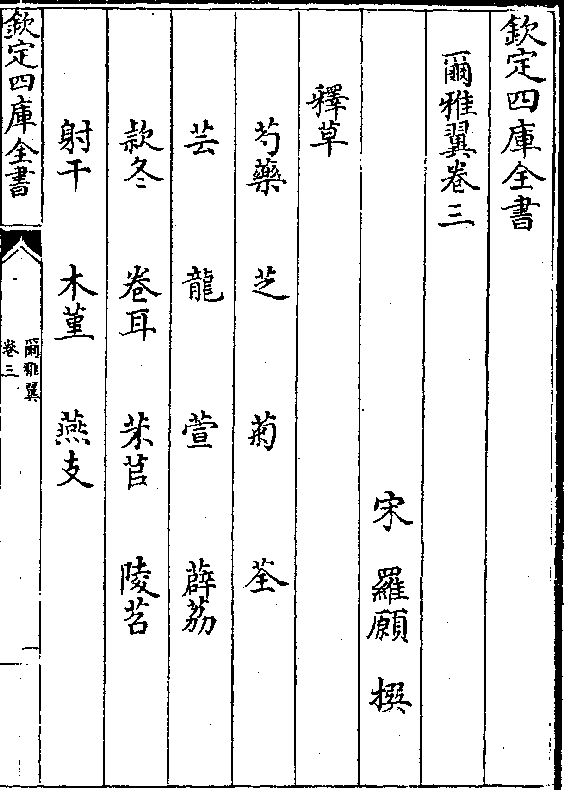 欽定四庫全書
爾雅翼卷三
宋 羅願 撰
釋草
芍藥 芝 菊 荃
芸 龍 萱 薜荔
款冬 卷耳 芣苢 陵苕
射干 木堇 燕支
欽定四庫全書
爾雅翼
卷三
一